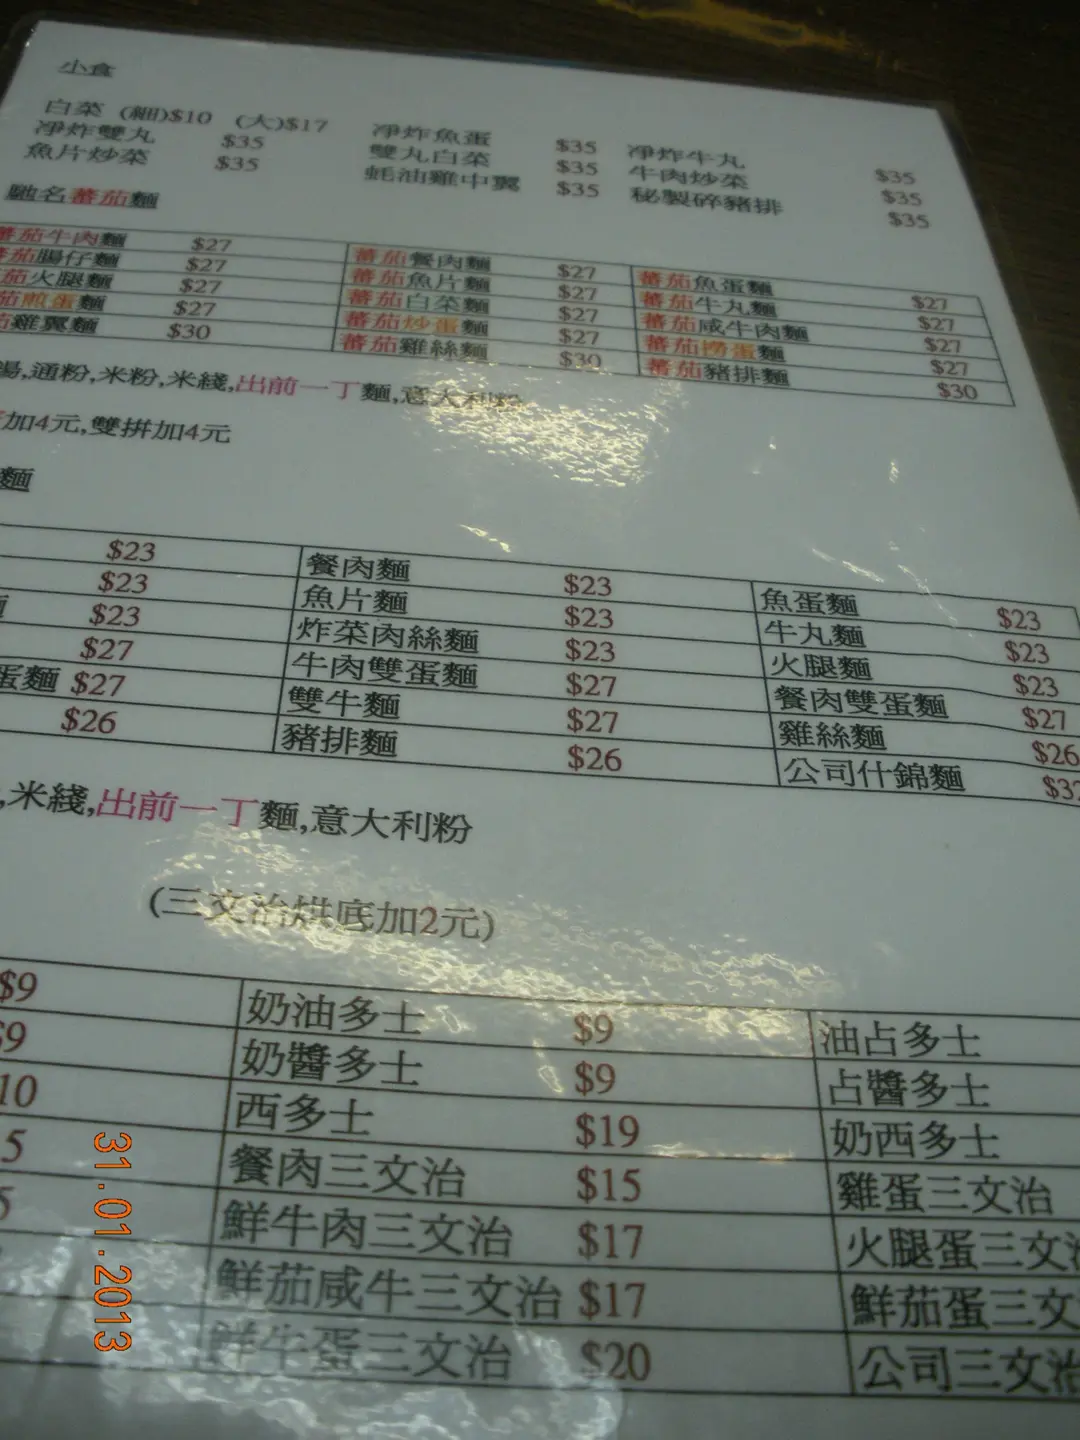 小食
白菜 (細)$10 (大)$17
淨炸雙丸 $35 淨炸魚蛋 $35 淨炸牛丸 $35
魚片炒菜 $35 雙丸白菜 $35 牛肉炒菜 $35
蚝油雞中翼 $35 秘製碎豬排 $35
馳名蕃茄麵
蕃茄牛肉麵 $27 蕃茄餐肉麵 $27 蕃茄魚蛋麵 $27
蕃茄腸仔麵 $27 蕃茄魚片麵 $27 蕃茄牛丸麵 $27
茄火腿麵 $27 蕃茄白菜麵 $27 蕃茄咸牛肉麵 $27
茄煎蛋麵 $27 蕃茄炒蛋麵 $27 蕃茄撈蛋麵 $27
雞翼麵 $30 蕃茄雞絲麵 $30 蕃茄豬排麵 $30
湯,通粉,米粉,米綫,出前一丁麵,意大利粉
加4元,雙拼加4元
麵
$23 餐肉麵 $23 魚蛋麵 $23
$23 魚片麵 $23 牛丸麵 $23
$23 炸菜肉絲麵 $23 火腿麵 $23
$27 牛肉雙蛋麵 $27 餐肉雙蛋麵 $27
蛋麵 $27 雙牛麵 $27 雞絲麵 $26
$26 豬排麵 $26 公司什錦麵
,米綫,出前一丁麵,意大利粉
(三文治烘底加2元)
$9 奶油多士 $9 油占多士
$9 奶醬多士 $9 占醬多士
10 西多士 $19 奶西多士
5 餐肉三文治 $15 雞蛋三文治
5 鮮牛肉三文治 $17 火腿蛋三文
鮮茄咸牛三文治 $17 鮮茄蛋三文
鮮牛蛋三文治 $20 公司三文治
31.01.2013